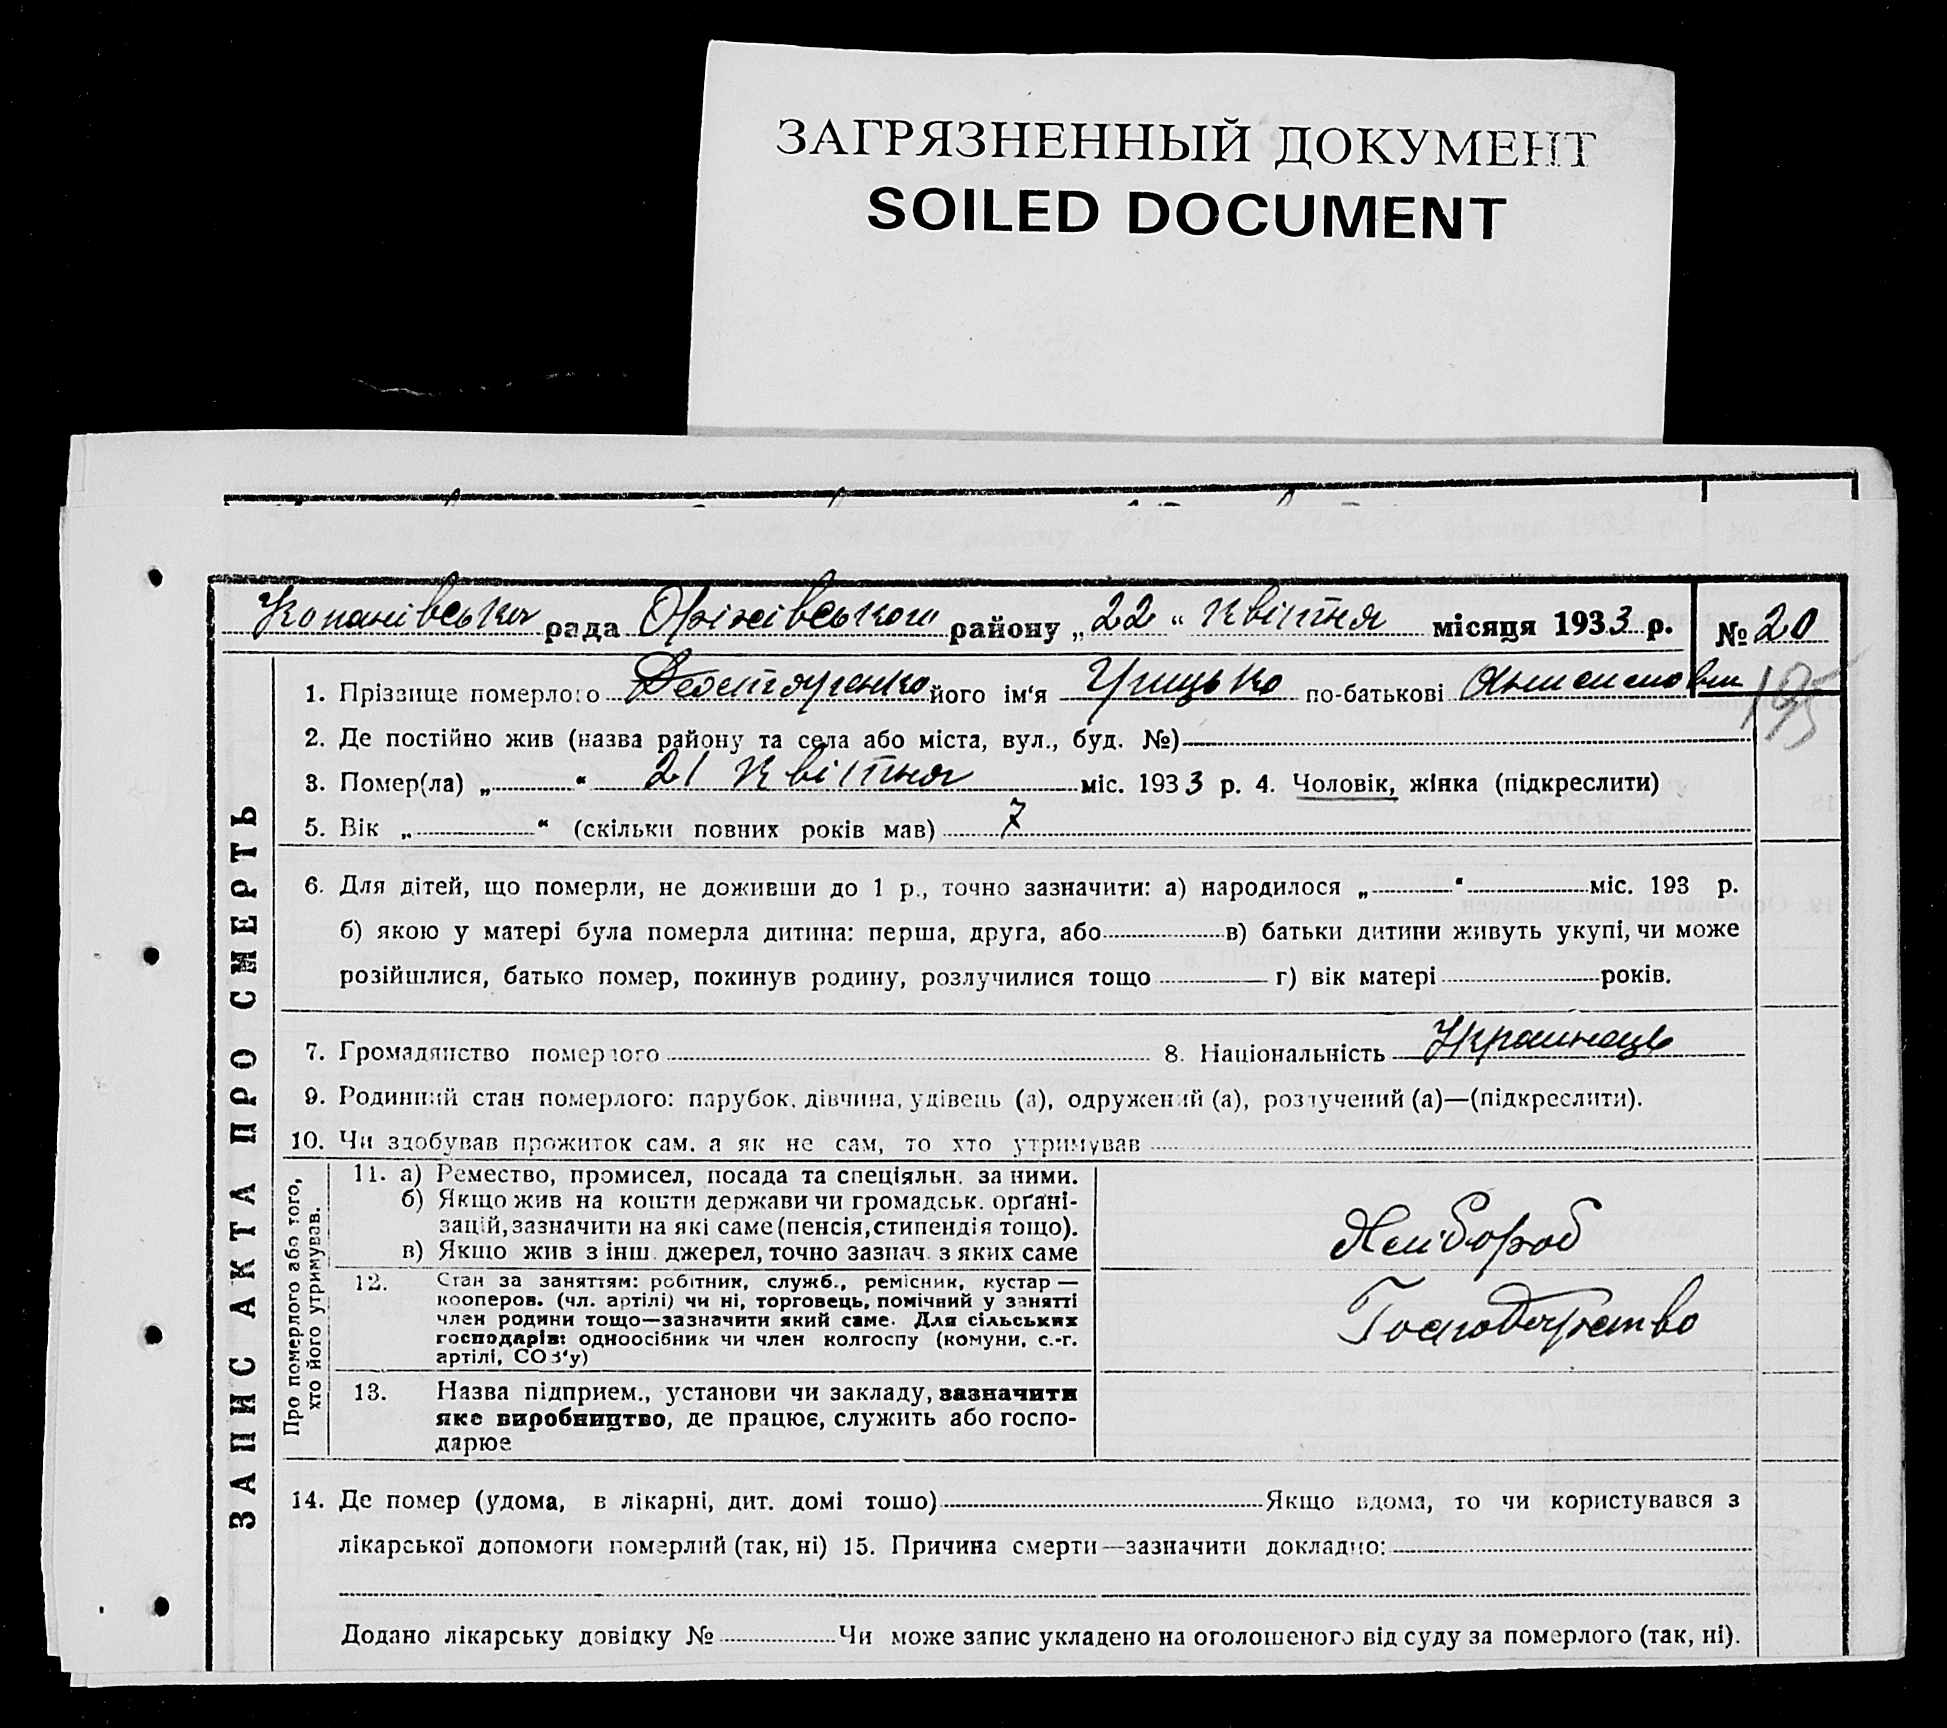 ЗАГРЯЗНЕННЫЙ ДОКУМЕНТ
SOILED DOCUMENT
Копанівська рада Оріхівського району „22“ квітня місяця 1933 р. № 20
1. Прізвище померлого Дегтяренко його ім'я Грицько по-батькові
195
2. Де постійно жив (назва району та села або міста, вул., буд. №)
3. Помер(ла) „ “ 21 квітня міс. 1933 р. 4. Чоловік, жінка (підкреслити)
5. Вік „ “ (скільки повних років мав) 7
6. Для дітей, що померли, не доживши до 1 р., точно зазначити: а) народилося „ “ міс. 193 р.
б) якою у матері була померла дитина: перша, друга, або в) батьки дитини живуть укупі, чи може
розійшлися, батько помер, покинув родину, розлучилися тощо г) вік матері років.
7. Громадянство померлого 8. Національність Українець
9. Родинний стан померлого: парубок, дівчина, удівець (а), одружений (а), розлучений (а)—(підкреслити).
10. Чи здобував прожиток сам, а як не сам, то хто утримував
ЗАПИС АКТА ПРО СМЕРТЬ
Про померлого або того,
хто його утримував.
11. а) Ремество, промисел, посада та спеціяльн. за ними.
б) Якщо жив на кошти держави чи громадськ. орґані-
зацій, зазначити на які саме (пенсія, стипендія тощо).
в) Якщо жив з інш. джерел, точно зазнач. з яких саме
Хлибороб
12. Стан за заняттям: робітник, служб., ремісник, кустар —
кооперов. (чл. артілі) чи ні, торговець, помічний у занятті
член родини тощо—зазначити який саме. Для сільських
господарів: одноосібник чи член колгоспу (комуни, с.-г.
артілі, СОЗ'у)
Господарство
13. Назва підприєм., установи чи закладу, зазначити
яке виробництво, де працює, служить або госпо-
дарює
14. Де помер (удома, в лікарні, дит. домі тощо) Якщо вдома, то чи користувався з
лікарської допомоги померлий (так, ні) 15. Причина смерти—зазначити докладно:
Додано лікарську довідку № Чи може запис укладено на оголошеного від суду за померлого (так, ні).